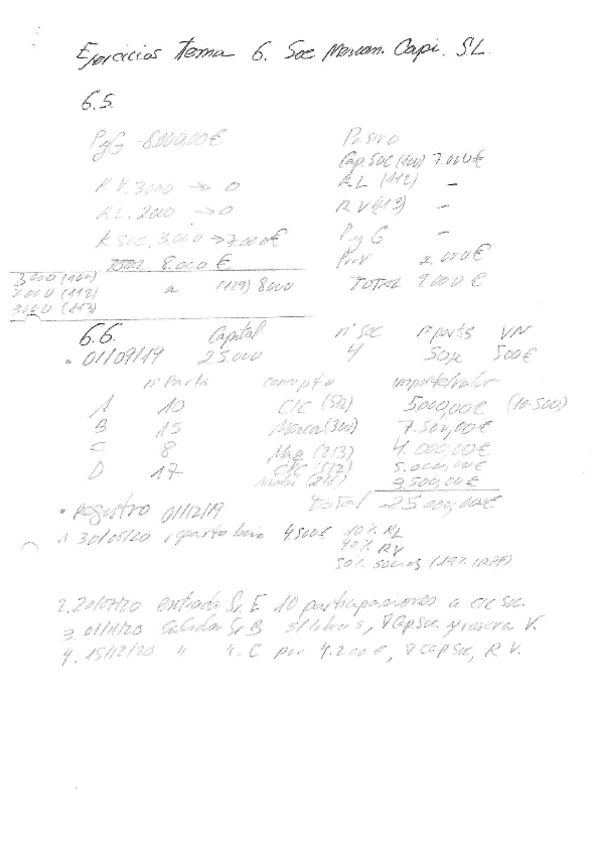 Ejercicios tema 6. Soc Mercan. Capi. S.L.
6.5.
PyG -8.000,00€ Pasivo
Cap. SOC (100) 7.000€
R.V. 3000 → 0 R L (112) -
R.L. 2000 → 0 R V (113) -
K SOC. 3.000 → 7.000€ P y G -
TOTAL 8.000 € 2.000€
3000 (100) TOTAL 9.000€
2000 (112) a (129) 8000
3000 (113)
6.6. Capital nº soc nº partis VN
• 01/09/19 25.000 4 500€
nº Partis concepto importe/valor
A 10 C/C (572) 5000,00€ (10·500)
B 15 Marca (300) 7.500,00€
C 8 Maq (213) 4.000,00€
D 17 C/C (572) 5.000,00€
(216) 3500,00€
Total 25000,00€
• Registro 01/12/19
1. 30/05/20 reparto bcio 4500€ 10% RL
40% RV
50% socios (19% IRPF)
2. 20/07/20 entrada Sr. E 10 participaciones a c/c soc.
3. 01/11/20 Salida Sr B s/ , ∇ Cap Soc. y reserva V.
4. 15/12/20 " ". C por 4.200€, ∇ cap soc, R V.